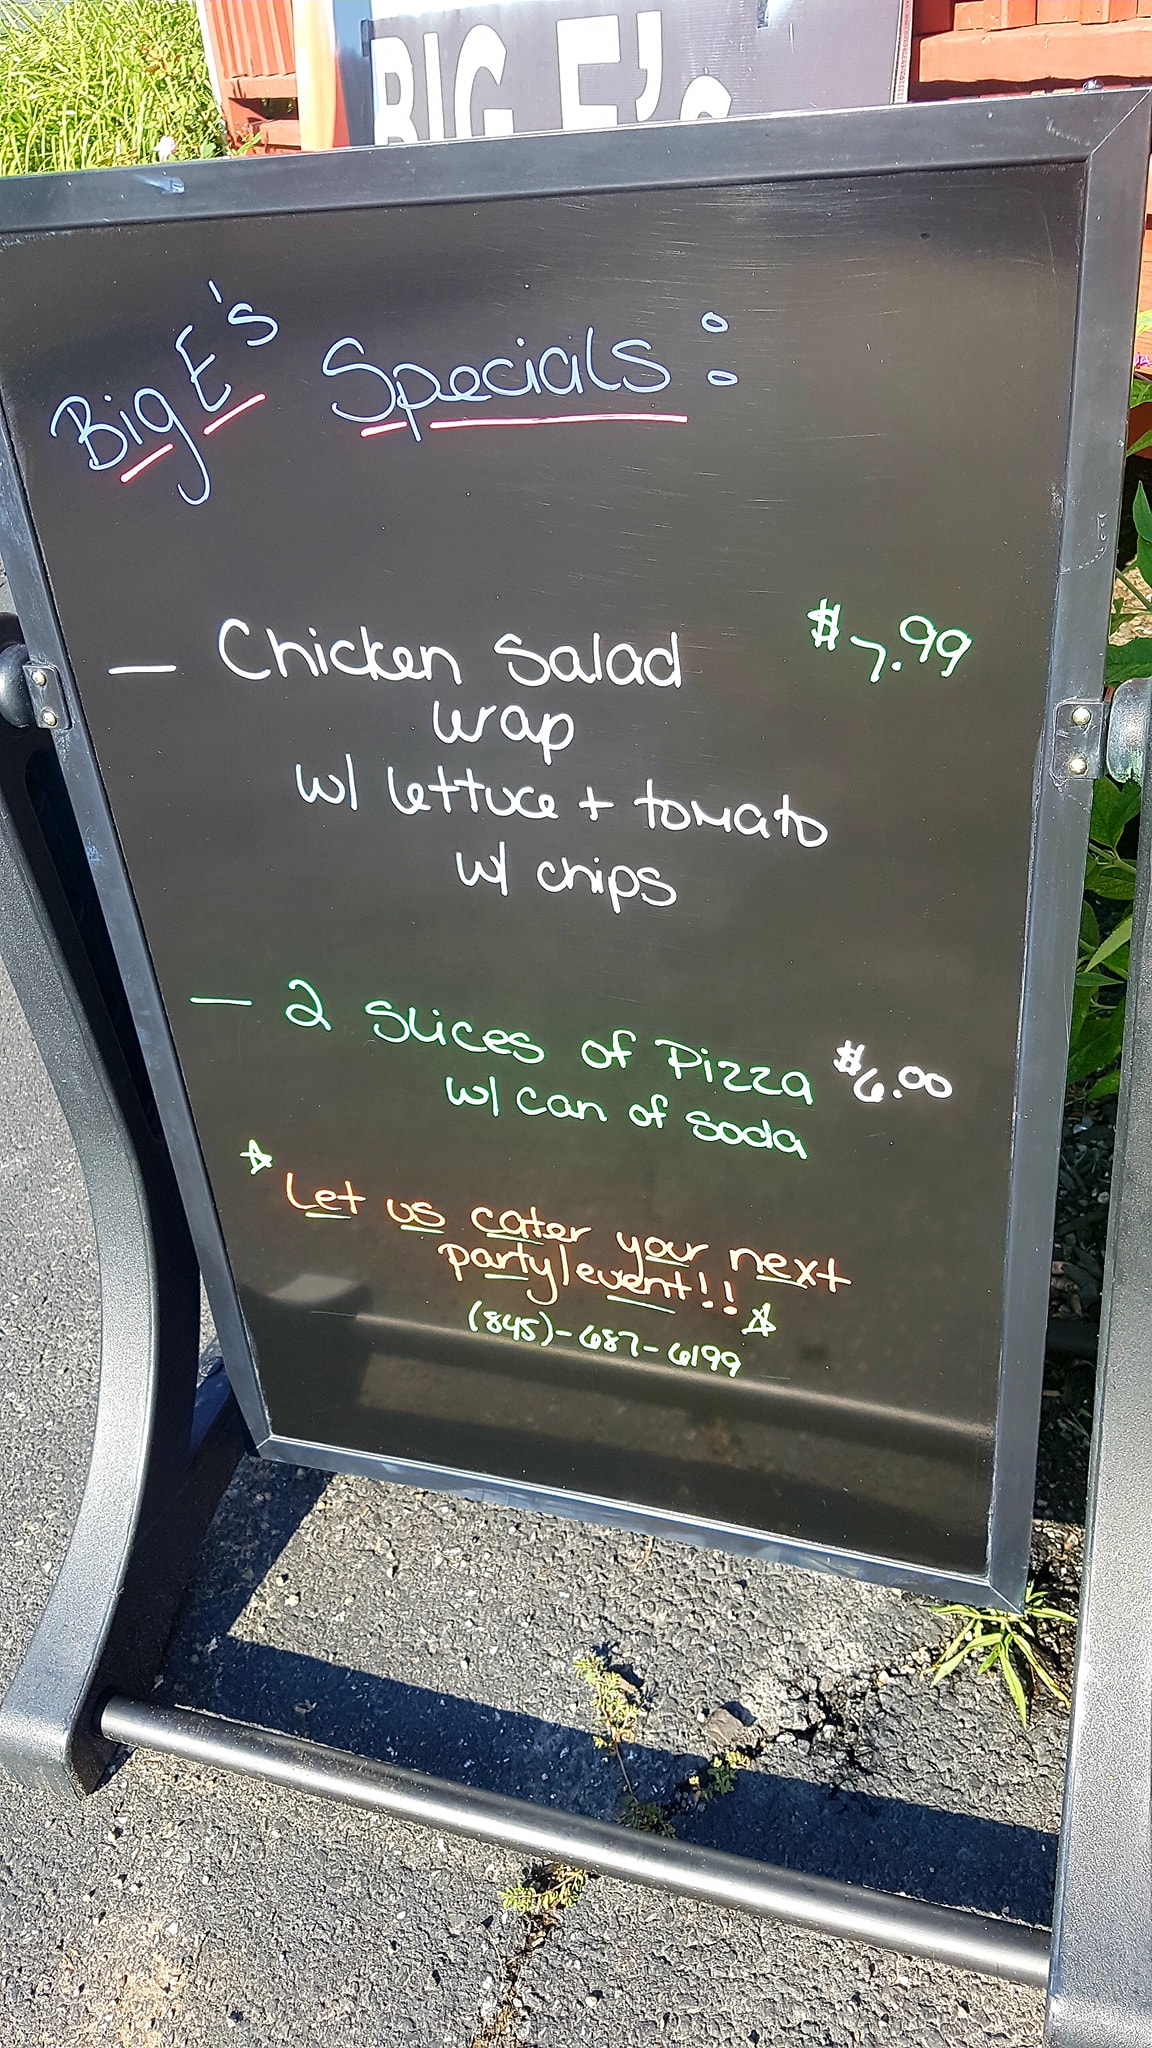 BIG E's
Big E's Specials:
— Chicken Salad $7.99
wrap
w/ lettuce + tomato
w/ chips
— 2 Slices of Pizza $6.00
w/ can of soda
☆ Let us cater your next
party/event!! ☆
(845)-687-6199